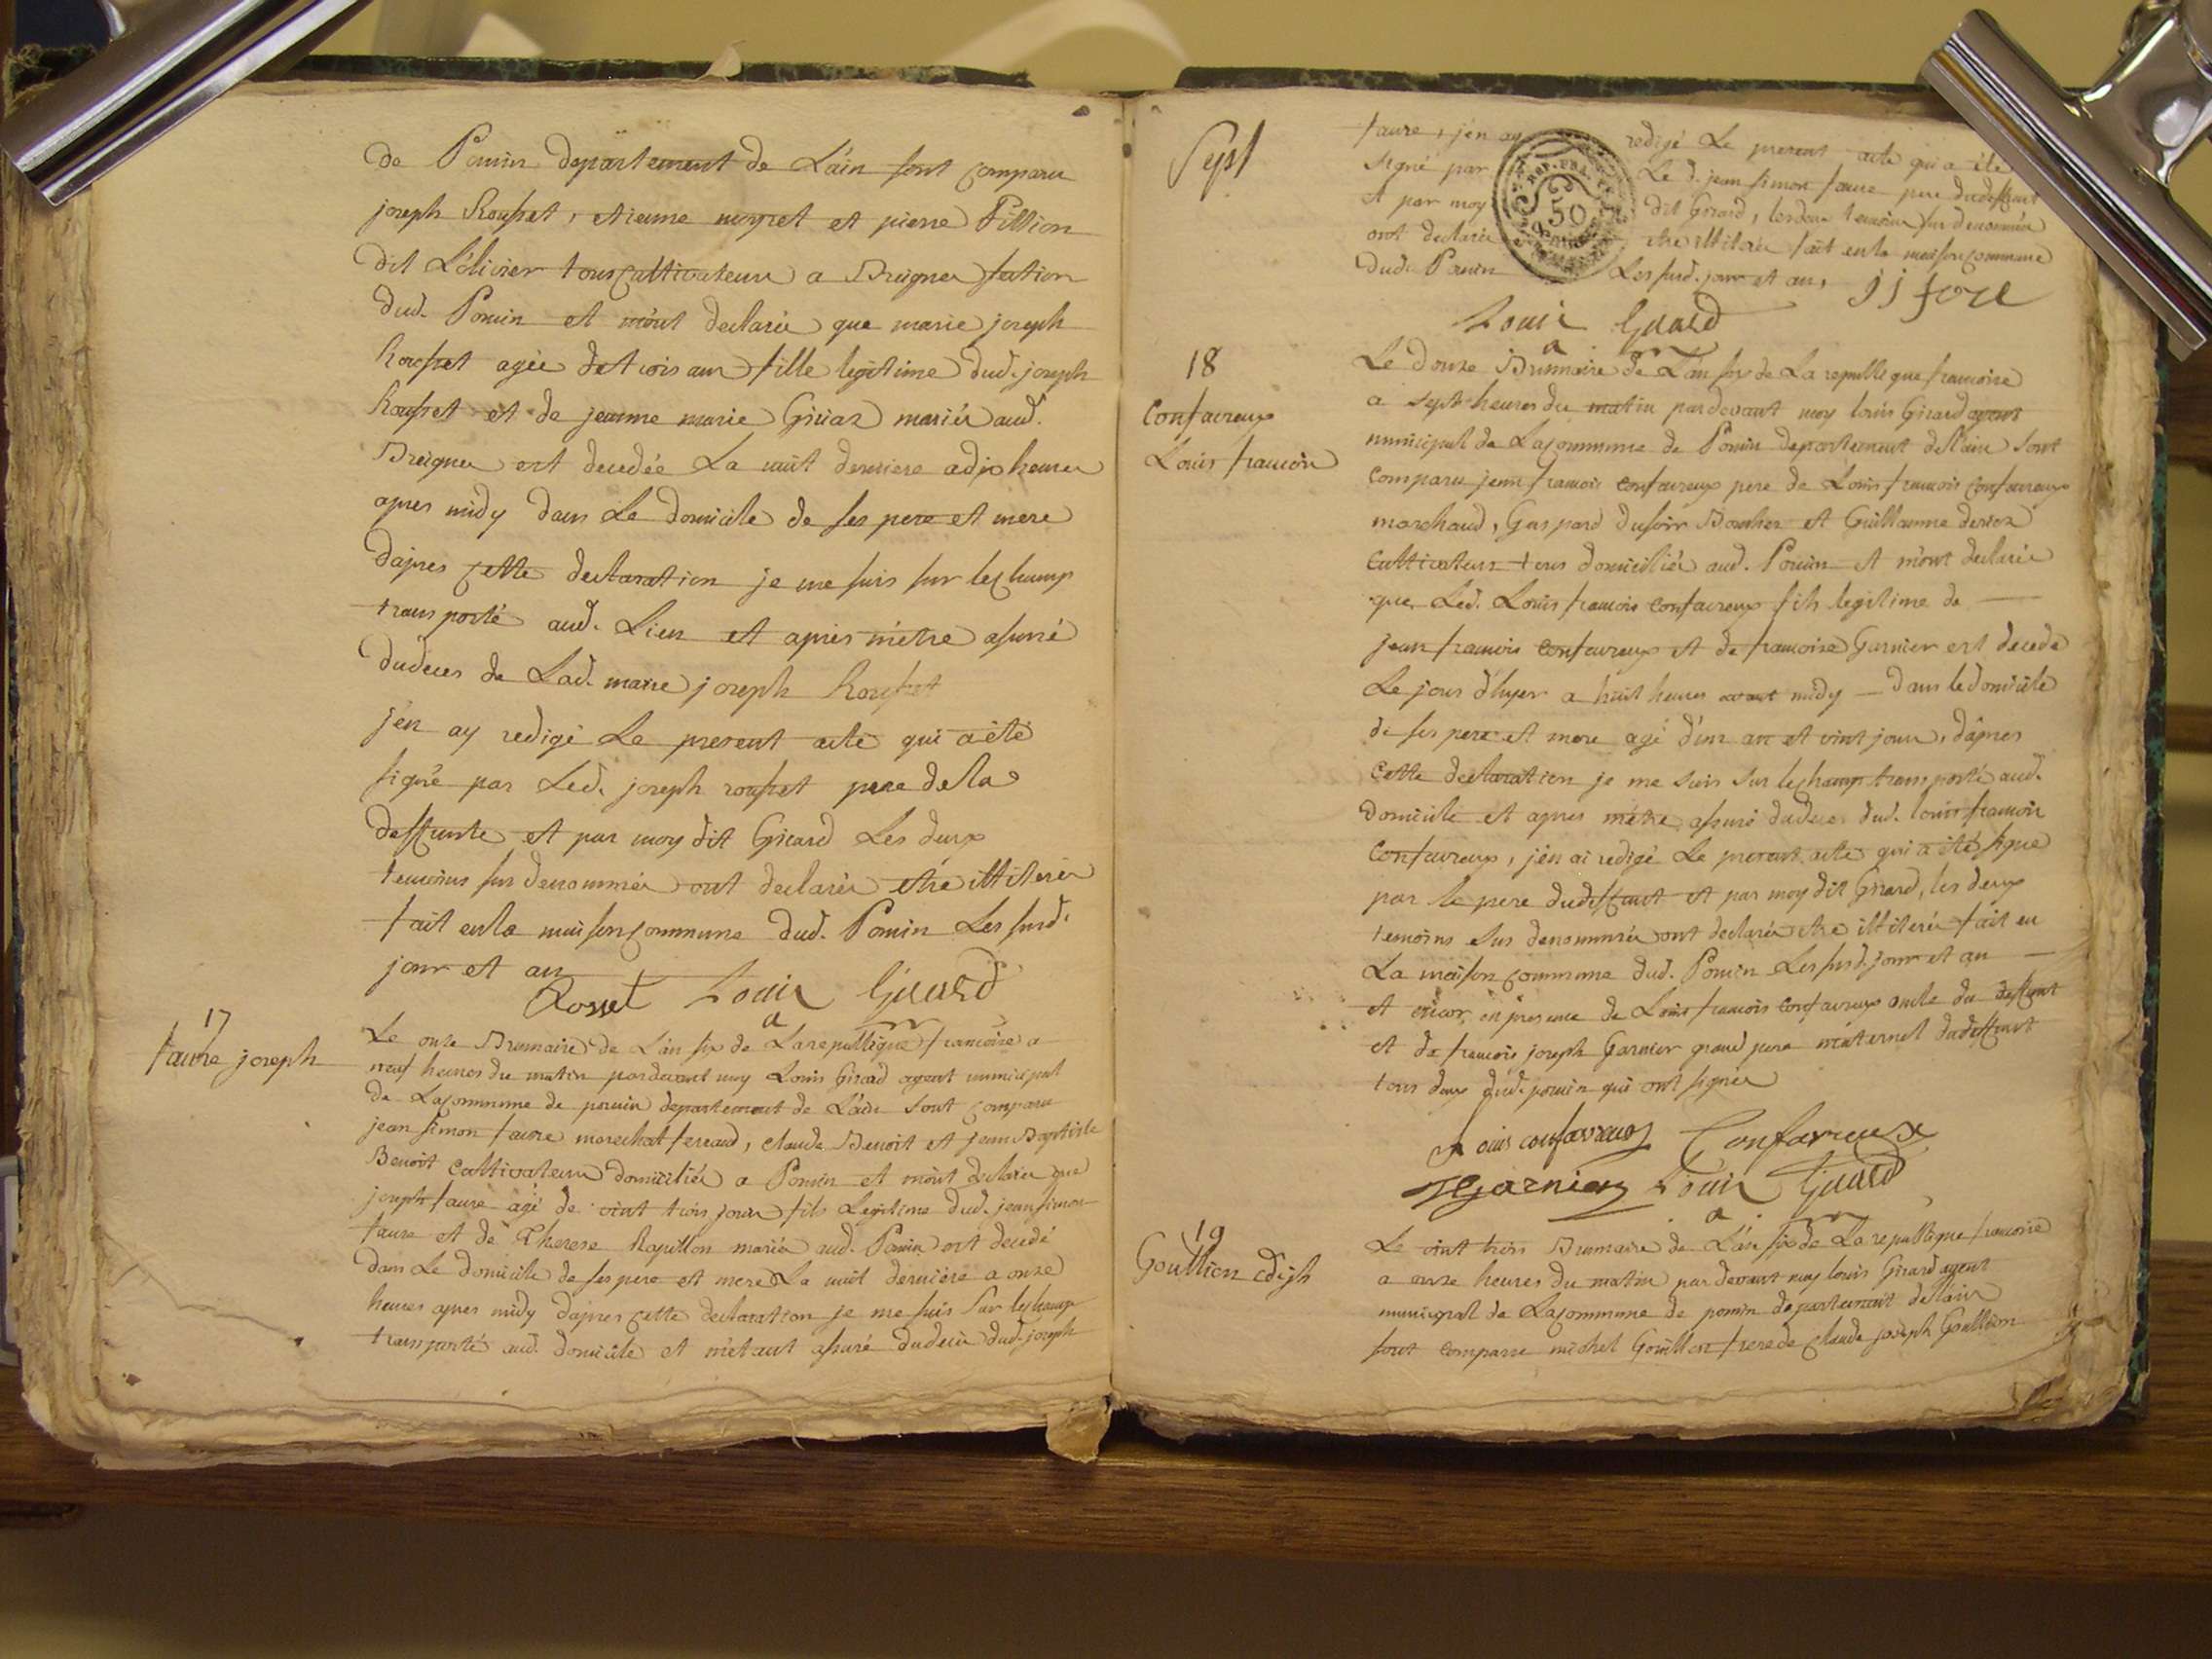 de Poncin departement de L'ain sont comparu
joseph Rousset, etienne moyret et pierre Pittion
dit L'olivier tous Cultivateurs a Breignes section
dud. Poncin et m'ont declarés que marie joseph
Rousset agée de trois ans fille legitime dud. joseph
Rousset et de jeanne marie Griiaz mariés aud.
Breignes est decedée La nuit derniere a dix heures
apres midy dans Le domicile de ses pere et mere
d'apres cette declaration je me suis sur lechamp
transporté aud. Lieu et apres m'etre assuré
dudeces de Lad. marie joseph Rousset
j'en ay redigé Le present acte qui a été
signé par Led. joseph rousset pere dela
deffunte et par moy dit Girard Les deux
temoins sus denommés ont declarés etre illiterés
fait enla maison commune dud. Poncin Les susd.
jour et an
Rosset Louis Girard
a m
17
faure joseph
Le onze Brumaire de L'an six de La republique francoise a
neuf heures du matin pardevant moy Louis Girard agent municipal
de La commune de poncin departement de L'ain sont comparu
jean simon faure marechal ferrand, claude Benoit et jean Baptiste
Benoit Cultivateurs domiciliés a Poncin et m'ont declarés que
joseph faure agé de vint trois jours fils Legitime dud. jean simon
faure et de Therese Rapillon mariés aud. Poncin est decedé
dans Le domicile de ses pere et mere La nuit derniere a onze
heures apres midy d'apres cette declaration je me suis sur lechamp
transporté aud. domicile et m'etant assuré dudeces dud. joseph
Sept
REP. FRA.
50
faure, j'en ay redigé Le present acte qui a été
signé par Le d. jean simon faure pere dudeffunt
et par moy dit Girard, les deux temoins sus denommés
ont declarés etre illiterés fait enla maison commune
dud. Poncin Les susd. jour et an,
JJ fore
Louis Girard
a m
18
Confavreux
Louis francois
Le douze Brumaire de L'an six de La republique francoise
a sept heures du matin pardevant moy louis Girard agent
municipal de La commune de Poncin departement de l'ain sont
comparu jean francois confavreux pere de Louis francois confavreux
marchand, Gaspard dusoir Boucher et Guillaume derioz
Cultivateur tous domiciliés aud. Poncin et m'ont declarés
que Led. Louis francois confavreux fils legitime de
jean francois confavreux et de francoise Garnier est decedé
Le jour d'hyer a huit heures avant midy dans ledomicile
de ses pere et mere agé d'un an et vint jours, d'apres
Cette declaration je me suis sur lechamp transporté aud.
domicile et apres m'etre assuré dudeces dud. louis francois
Confavreux, j'en ai redigé Le present acte qui a été signé
par le pere dudeffunt et par moy dit Girard, les deux
temoins sus denommés ont declarés etre illiterés fait en
La maison commune dud. Poncin Les susd. jour et an
et encor en presence de Louis francois confavreux oncle du deffunt
et de francois joseph Garnier grand pere maternel dudeffunt
tous deux dud. poncin qui ont signés
Louis confavreux Confavreux
Garnier Louis Girard
a m
19
Goullion cd jph
Le vint trois Brumaire de L'an six de La republique francoise
a onze heures du matin par devant moy louis Girard agent
municipal de La commune de poncin departement de l'ain
sont comparu michel Goullion frere de Claude joseph Goullion